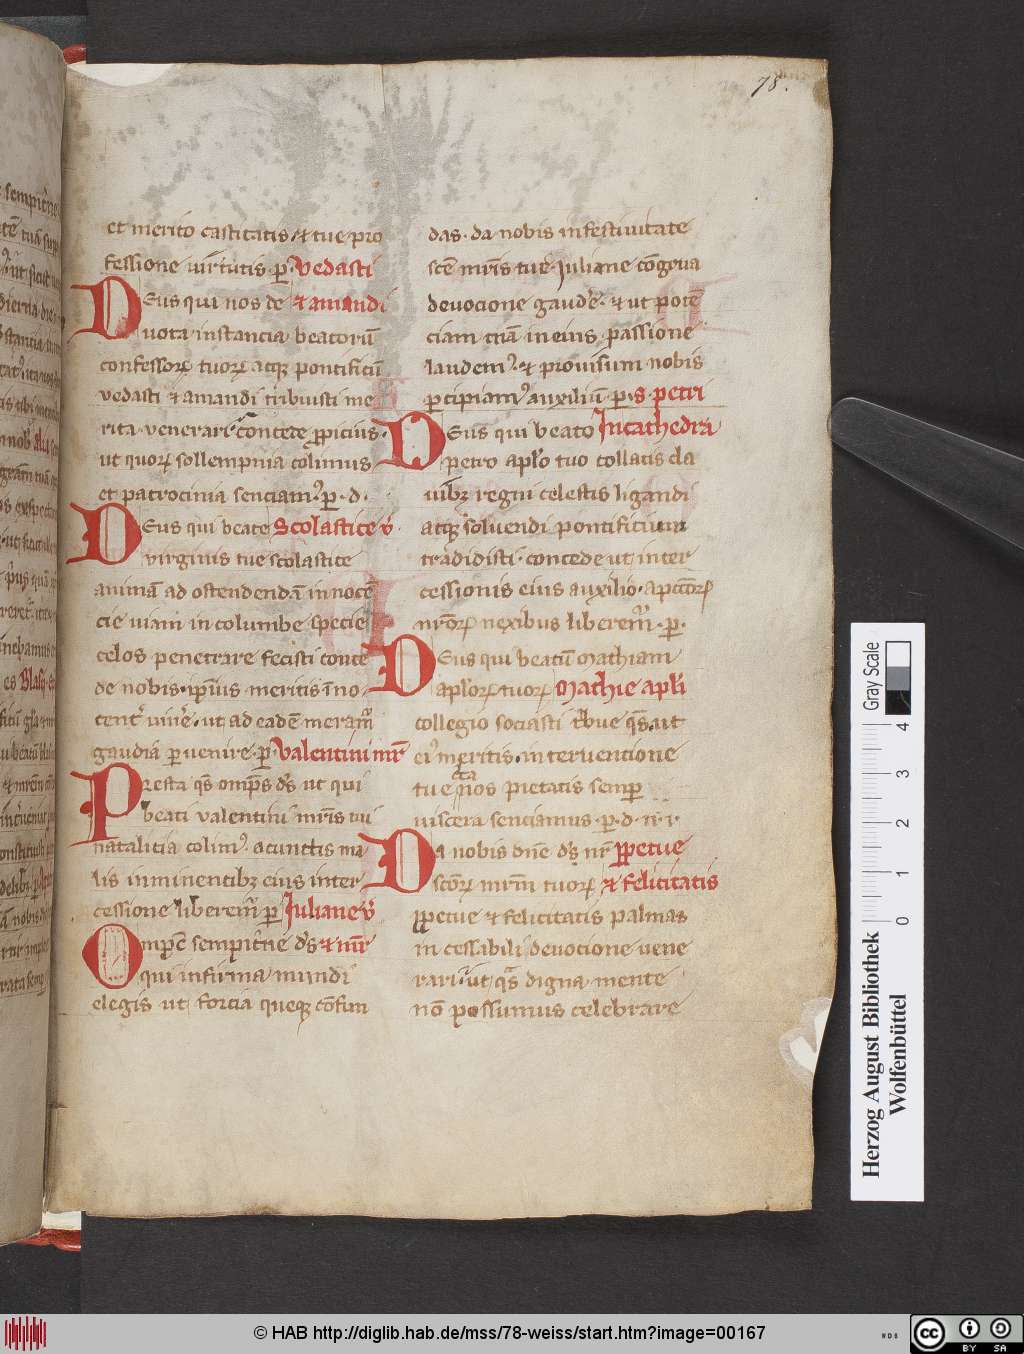 78.
et merito castitatis, et tue pro
fessione uirtutis. p. Vedasti
Deus qui nos de et amandi
uota instancia beatorū
confessorꝝ tuorꝝ atqꝫ pontificū
vedasti et amandi tribuisti me
rita venerari concede ꝓpicius.
ut quorꝝ sollempnia colimus
et patrocinia senciamꝰ. p. d.
Deus qui beate Scolastice v̄.
virginis tue scolastice
animā ad ostendendā innocē
cie uiam in columbe specie
celos penetrare fecisti conce
de nobis ip̄ius meritis īno
center uiuere. ut ad eadē meram̄
gaudia ꝑuenire. p. Valentini mr̄
Presta qs̄ omp̄s ds̄ ut qui
beati valentini mr̄is tui
natalitia colimꝰ. a cunctis ma
lis inminentibꝫ eius inter
cessione liberem̄ p Juliane v̄
Omp̄c sempit̄ne ds̄ et mr̄
qui infirma mundi
elegis ut forcia queqꝫ cōfun
das. da nobis in festiuitate
scē mr̄is tue Juliane cōgrua
deuocione gaudere. et ut potē
ciam tuā in eius passione
laudemꝰ. et prouisum nobis
ꝑcipiamꝰ auxiliū. p. S. petri
Deus qui beato In cathedra
petro aplo tuo collatis cla
uibꝫ regni celestis ligandi
atqꝫ soluendi pontificium
tradidisti. concede ut inter
cessionis eius auxilio. a pctōrꝝ
nr̄orꝝ nexibus liberem̄. p.
Deus qui beatū Mathiam
aplorꝝ tuorꝝ Mathie apli
collegio sociasti tbue qs̄. ut
eiꝰ meritis. interuentione
tue nos pietatis semp
uiscera senciamus. p. d. n. i.
Da nobis dn̄e ds̄ nr̄ ꝑpetue
scōrꝝ mr̄m tuorꝝ et felicitatis
ꝑpetue et felicitatis palmas
incessabili deuocione uene
rari. ut qs digna mente
nō possumus celebrare
Gray Scale
0 1 2 3 4
Herzog August Bibliothek
Wolfenbüttel
© HAB http://diglib.hab.de/mss/78-weiss/start.htm?image=00167
cc BY SA